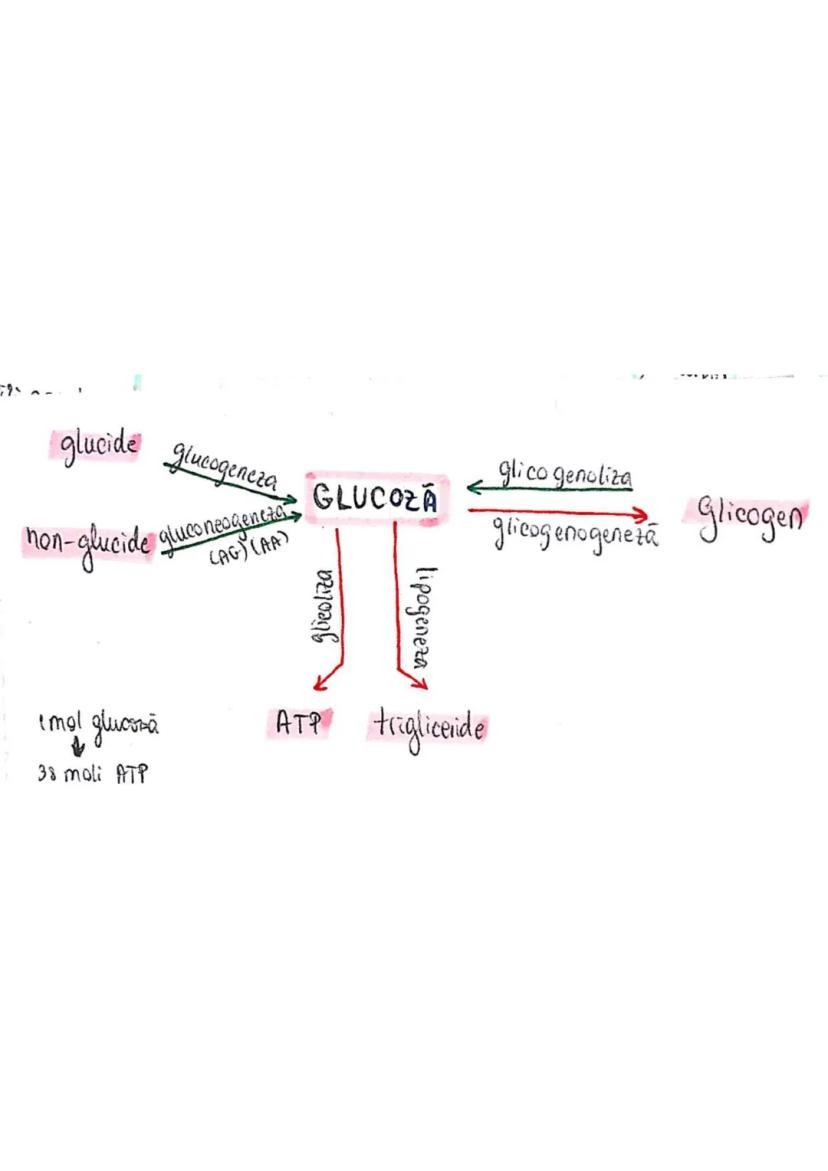 glucide
glucogeneza
GLUCOZĂ
glicogenoliza
Glicogen
glicogenogeneză
non-glucide
gluconeogeneza
(AG) (AA)
glicoliza
lipogeneza
ATP
trigliceride
1 mol glucoză
↓
38 moli ATP